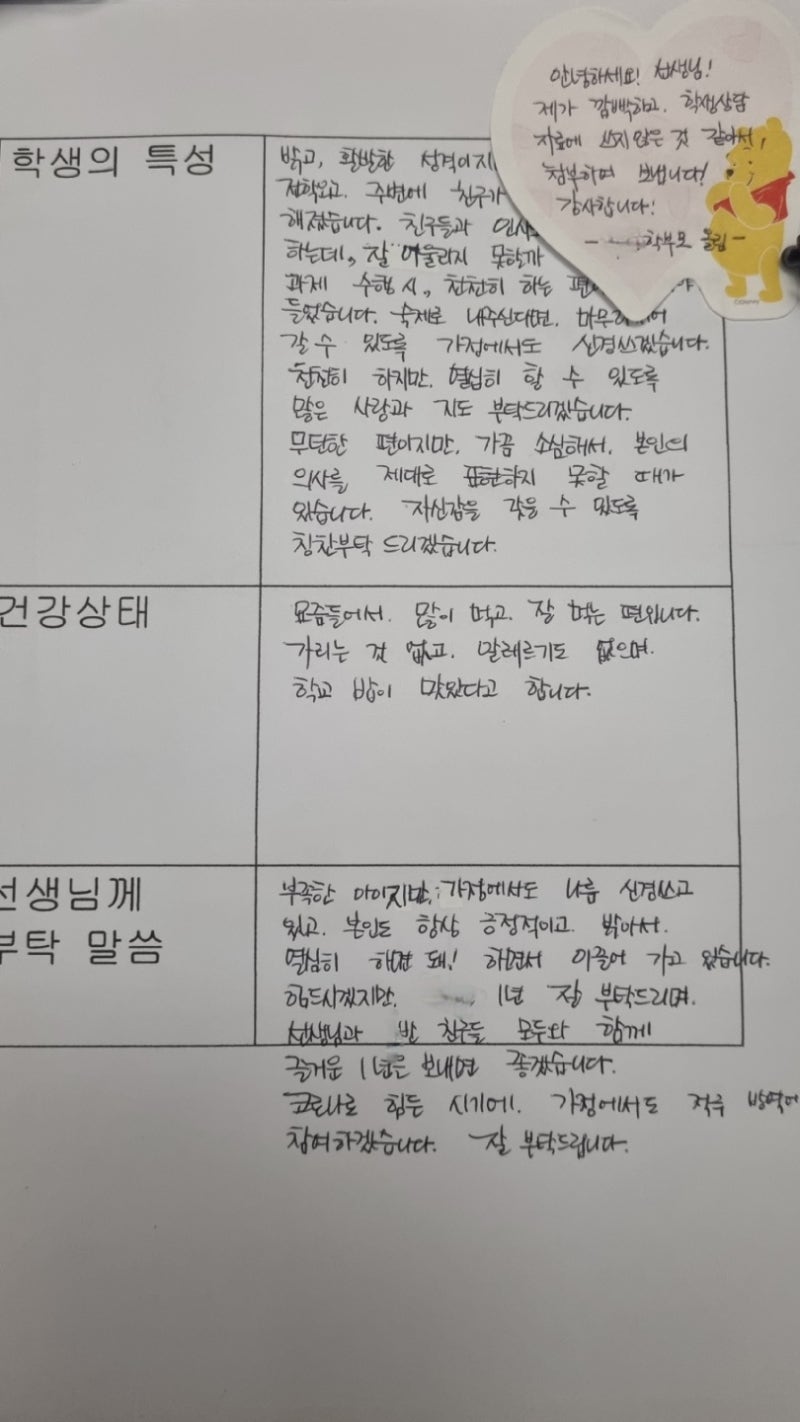 안녕하세요! 선생님!
제가 깜빡하고. 학생상담
자료에 쓰지 않은 것 같아서,
첨부하여 보냅니다!
감사합니다!
- 학부모 올림 -
학생의 특성
밝고, 활발한 성격이지
전학오고. 주변에 친구가
해졌습니다. 친구들과 인사
하는데, 잘 어울리지 못할까
과제 수행 시, 찬찬히 하는
들었습니다. 숙제로 내주신다면,
갈 수 있도록 가정에서도 신경쓰겠습니다.
찬찬히 하지만, 열심히 할 수 있도록
많은 사랑과 지도 부탁드리겠습니다.
무던한 편이지만, 가끔 소심해서, 본인의
의사를 제대로 표현하지 못할 때가
있습니다. 자신감을 갖을 수 있도록
칭찬부탁 드리겠습니다.
건강상태
요즘들어서. 많이 먹고. 잘 먹는 편입니다.
가리는 것 없고. 알레르기도 없으며.
학교 밥이 맛있다고 합니다.
선생님께
부탁 말씀
부족한 아이지만, 가정에서도 나름 신경쓰고
있고. 본인도 항상 긍정적이고. 밝아서.
열심히 하면 돼! 하면서 이끌어 가고 있습니다.
힘드시겠지만. 1년 잘 부탁드리며.
선생님과 반 친구들 모두와 함께
즐거운 1년을 보내면 좋겠습니다.
코로나로 힘든 시기에. 가정에서도 적극 방역에
참여하겠습니다. 잘 부탁드립니다.